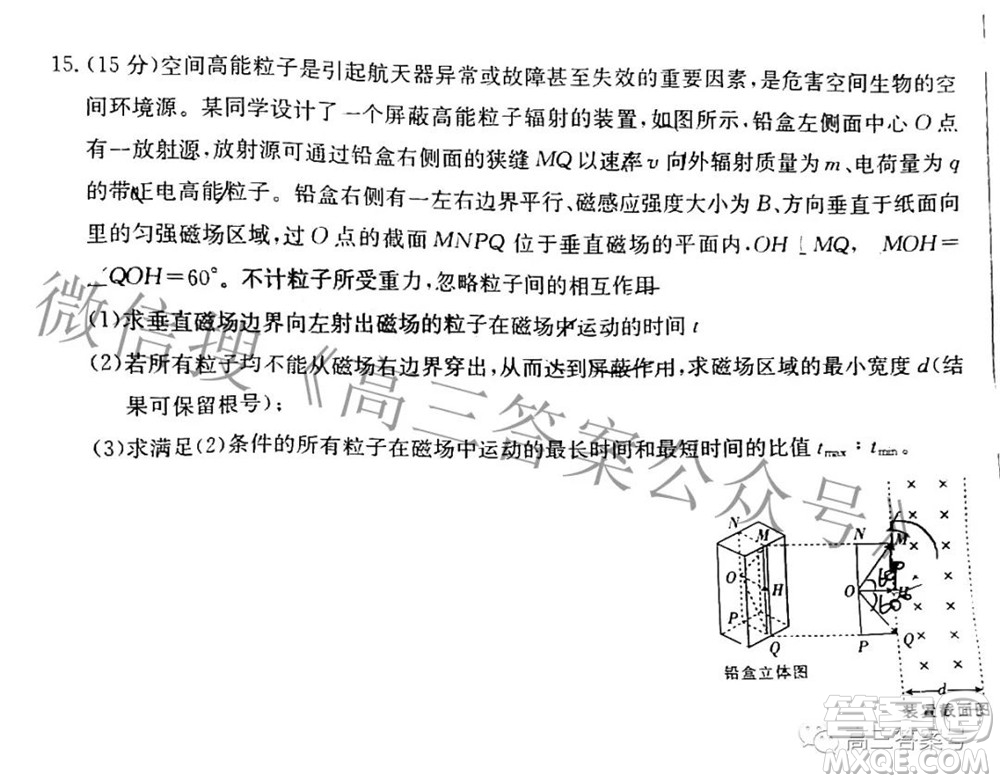 15.(15分)空间高能粒子是引起航天器异常或故障甚至失效的重要因素,是危害空间生物的空
间环境源。某同学设计了一个屏蔽高能粒子辐射的装置,如图所示,铅盒左侧面中心O点
有一放射源,放射源可通过铅盒右侧面的狭缝MQ以速率v向外辐射质量为m、电荷量为q
的带正电高能粒子。铅盒右侧有一左右边界平行、磁感应强度大小为B、方向垂直于纸面向
里的匀强磁场区域,过O点的截面MNPQ位于垂直磁场的平面内,OH⊥MQ, MOH=
∠QOH=60°。不计粒子所受重力,忽略粒子间的相互作用
(1)求垂直磁场边界向左射出磁场的粒子在磁场中运动的时间t
(2)若所有粒子均不能从磁场右边界穿出,从而达到屏蔽作用,求磁场区域的最小宽度d(结
果可保留根号);
(3)求满足(2)条件的所有粒子在磁场中运动的最长时间和最短时间的比值tmax:tmin。
微信搜《高三答案公众号》
N M
O H
P Q
铅立体图
N M
O H
60
60
P Q
d
装置截面图
高三答案号